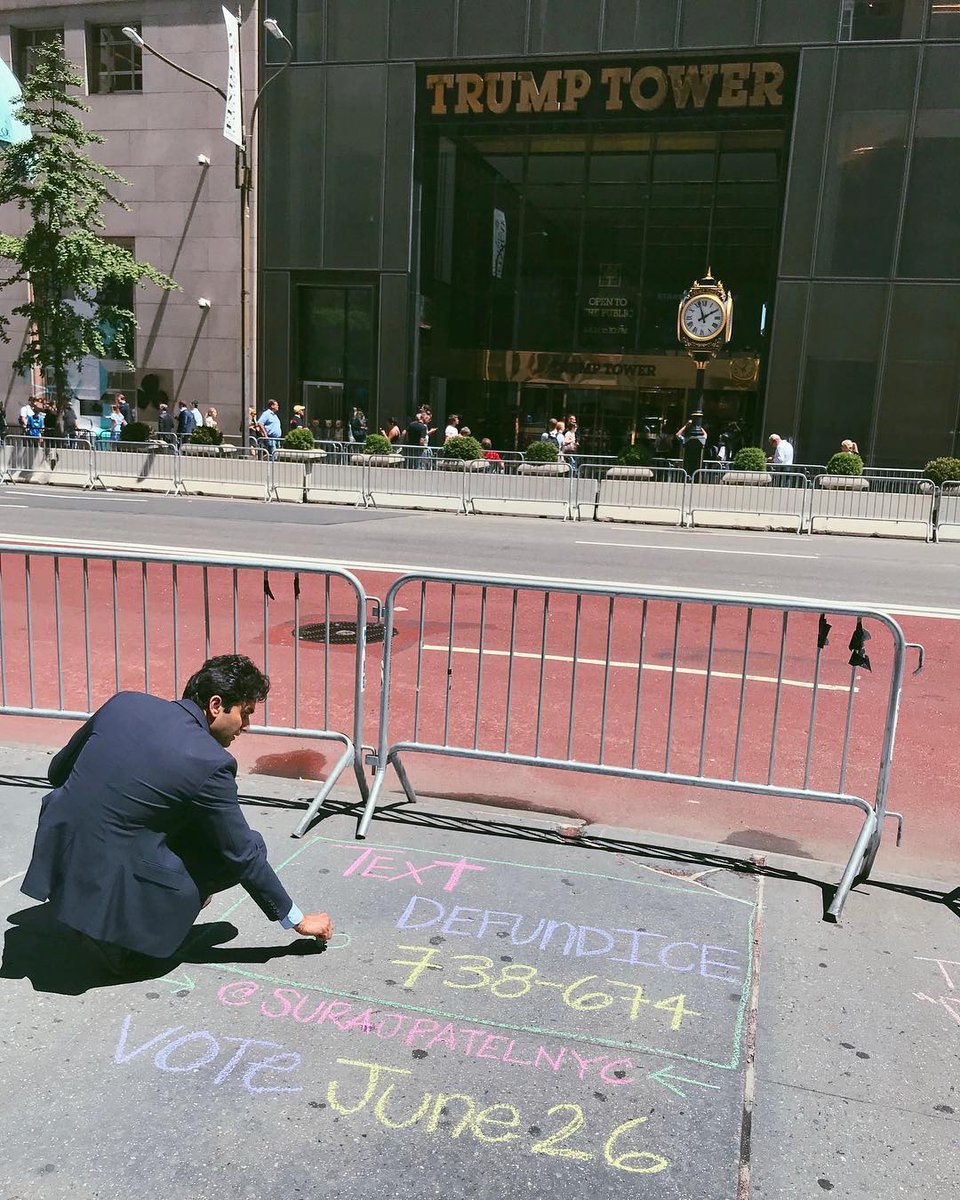 TRUMP TOWER
OPEN TO
THE PUBLIC
TRUMP TOWER
TEXT
DEFUNDICE
738-674
@SURAJPATELNYC
VOTe June 26